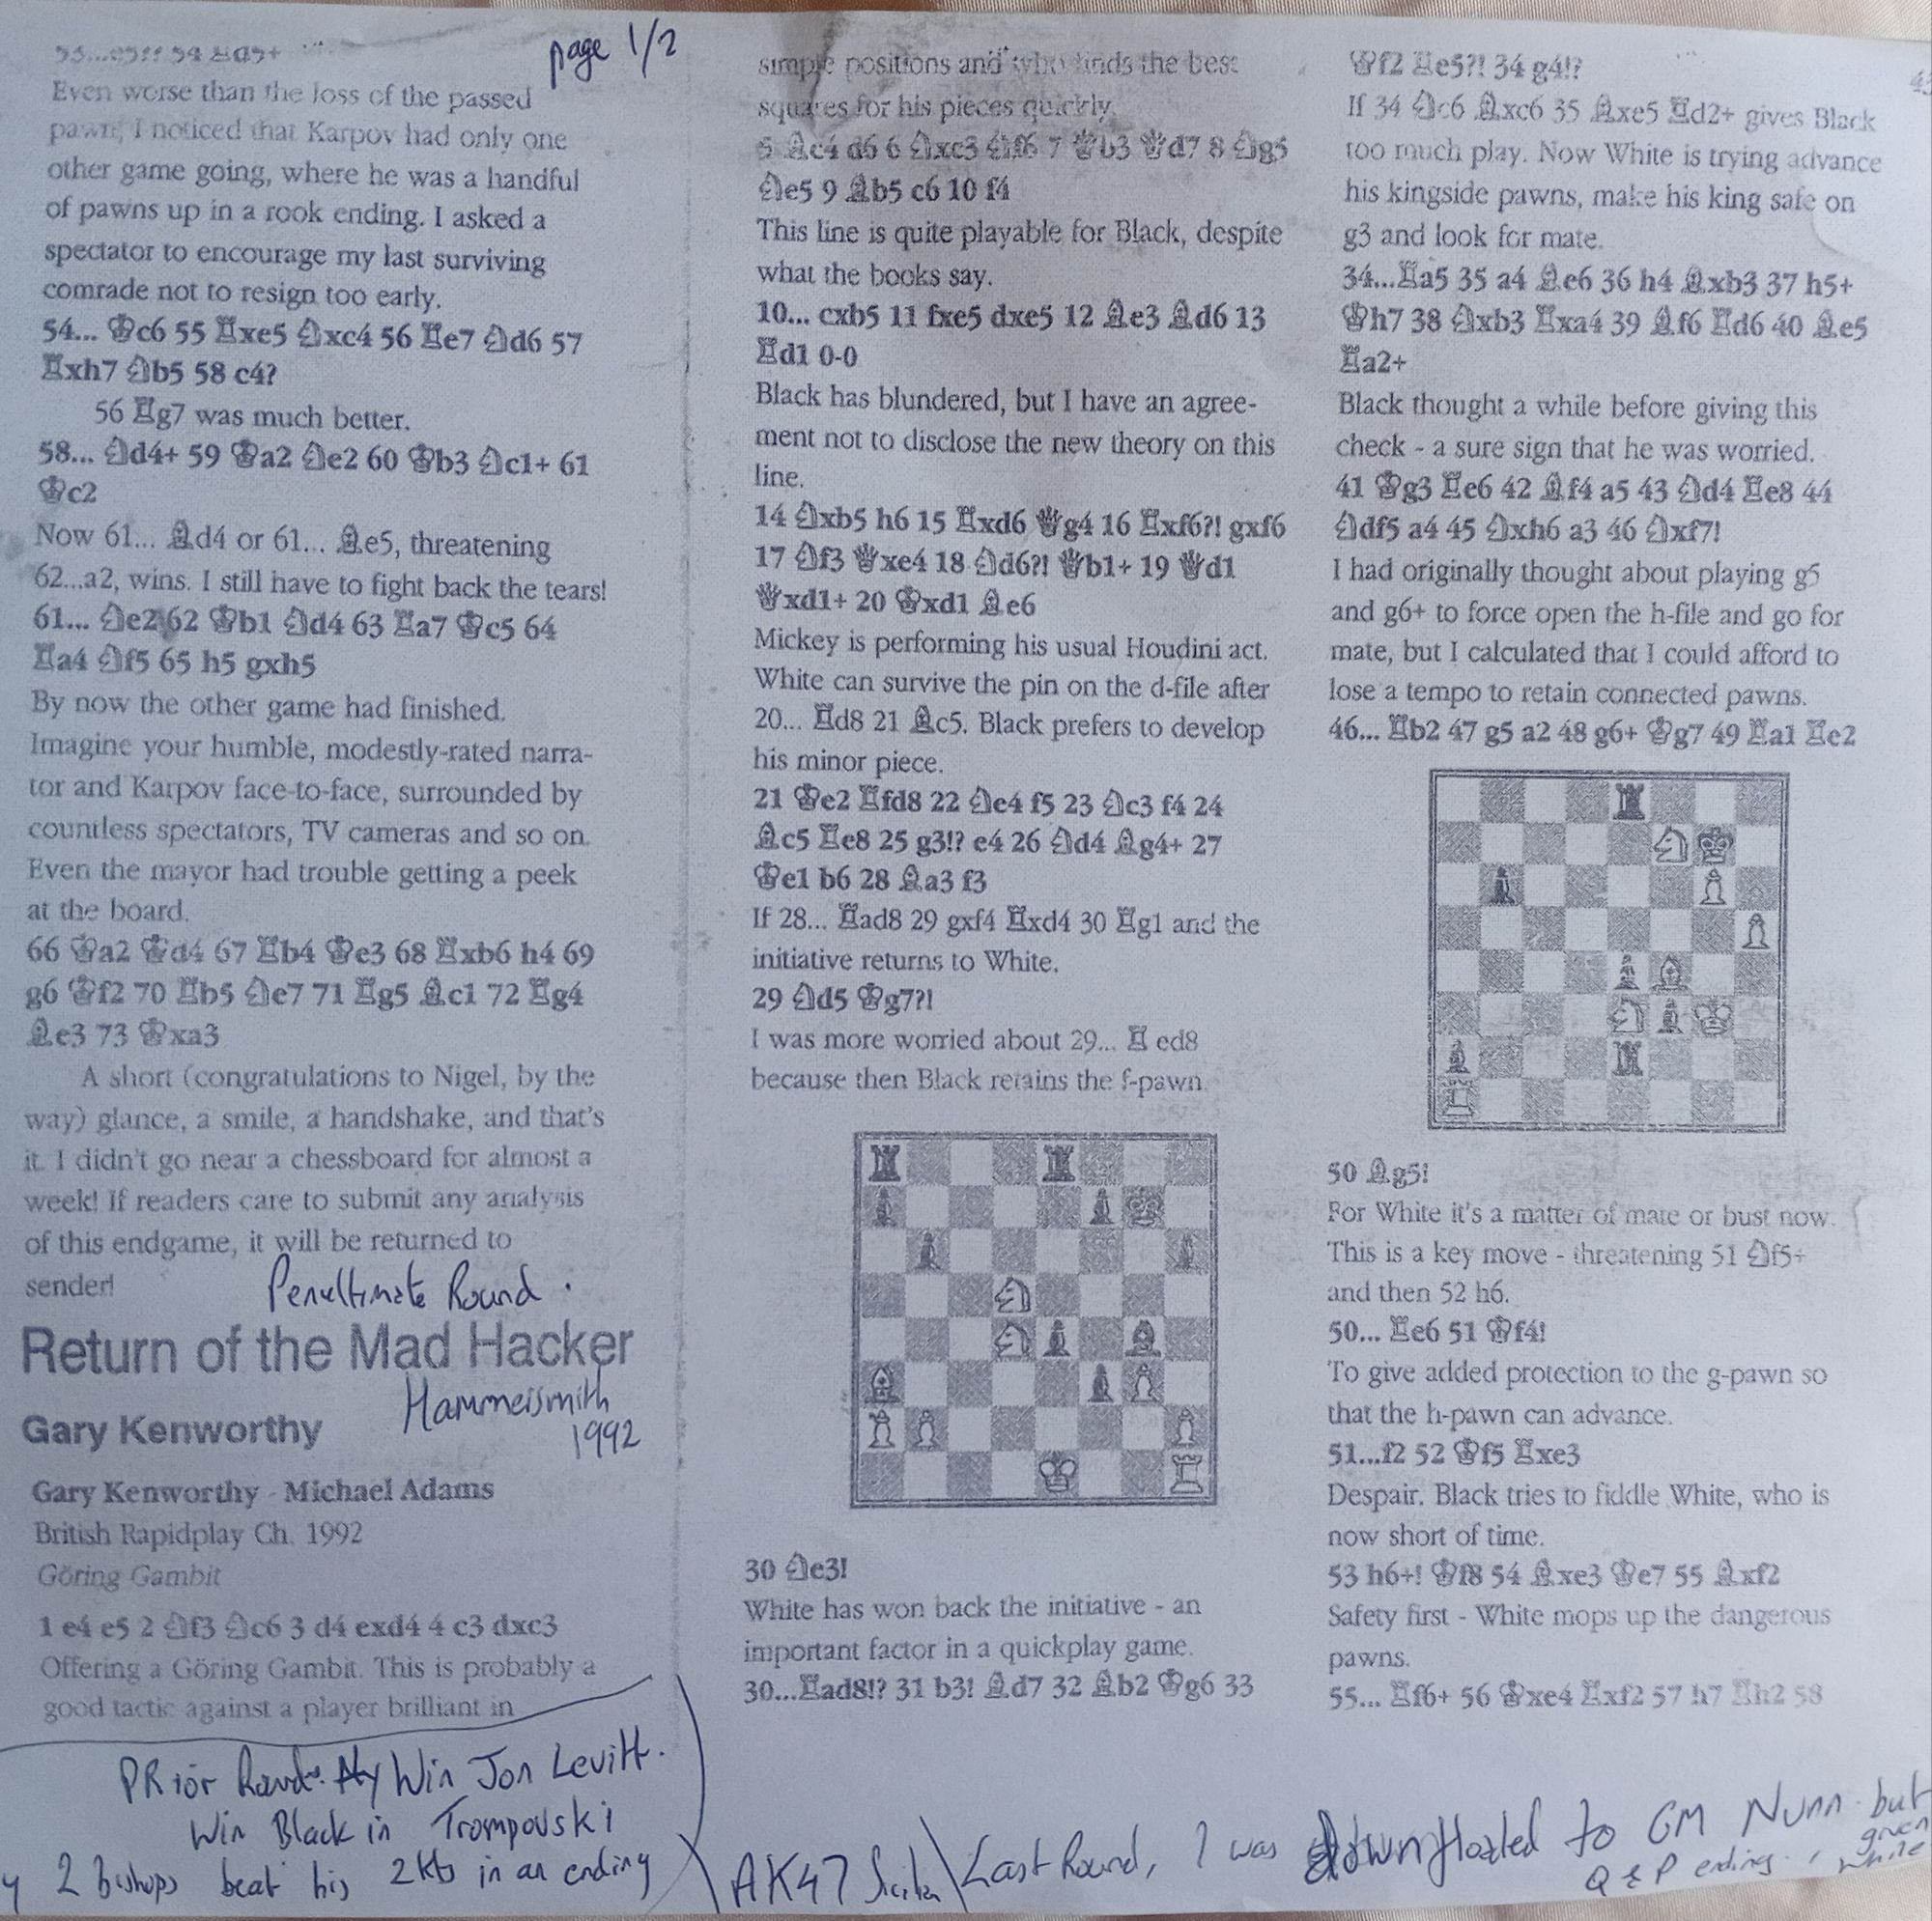 page 1/2
Even worse than the loss of the passed
pawn, I noticed that Karpov had only one
other game going, where he was a handful
of pawns up in a rook ending. I asked a
spectator to encourage my last surviving
comrade not to resign too early.
54... ♔c6 55 ♖xe5 ♘xc4 56 ♖e7 ♘d6 57
♖xh7 ♘b5 58 c4?
56 ♖g7 was much better.
58... ♘d4+ 59 ♔a2 ♘e2 60 ♔b3 ♘c1+ 61
♔c2
Now 61... ♗d4 or 61... ♗e5, threatening
62...a2, wins. I still have to fight back the tears!
61... ♘e2 62 ♔b1 ♘d4 63 ♖a7 ♔c5 64
♖a4 ♘f5 65 h5 gxh5
By now the other game had finished.
Imagine your humble, modestly-rated narra-
tor and Karpov face-to-face, surrounded by
countless spectators, TV cameras and so on.
Even the mayor had trouble getting a peek
at the board.
66 ♔a2 ♔d4 67 ♖b4 ♔e3 68 ♖xb6 h4 69
g6 ♔f2 70 ♖b5 ♘e7 71 ♖g5 ♗c1 72 ♖g4
♗e3 73 ♔xa3
A short (congratulations to Nigel, by the
way) glance, a smile, a handshake, and that's
it. I didn't go near a chessboard for almost a
week! If readers care to submit any analysis
of this endgame, it will be returned to
sender!
Penultimate Round.
Return of the Mad Hacker
Hammersmith
1992
Gary Kenworthy
Gary Kenworthy - Michael Adams
British Rapidplay Ch. 1992
Göring Gambit
1 e4 e5 2 ♘f3 ♘c6 3 d4 exd4 4 c3 dxc3
Offering a Göring Gambit. This is probably a
good tactic against a player brilliant in
simple positions and who finds the best
squares for his pieces quickly.
5 ♗c4 d6 6 ♘xc3 ♘f6 7 ♕b3 ♕d7 8 ♘g5
♘e5 9 ♗b5 c6 10 f4
This line is quite playable for Black, despite
what the books say.
10... cxb5 11 fxe5 dxe5 12 ♗e3 ♗d6 13
♖d1 0-0
Black has blundered, but I have an agree-
ment not to disclose the new theory on this
line.
14 ♘xb5 h6 15 ♖xd6 ♕g4 16 ♖xf6?! gxf6
17 ♘f3 ♕xe4 18 ♘d6?! ♕b1+ 19 ♕d1
♕xd1+ 20 ♔xd1 ♗e6
Mickey is performing his usual Houdini act.
White can survive the pin on the d-file after
20... ♖d8 21 ♗c5. Black prefers to develop
his minor piece.
21 ♔e2 ♖fd8 22 ♘e4 f5 23 ♘c3 f4 24
♗c5 ♖e8 25 g3!? e4 26 ♘d4 ♗g4+ 27
♔e1 b6 28 ♗a3 f3
If 28... ♖ad8 29 gxf4 ♖xd4 30 ♖g1 and the
initiative returns to White.
29 ♘d5 ♔g7?!
I was more worried about 29... ♖ ed8
because then Black retains the f-pawn.
30 ♘e3!
White has won back the initiative - an
important factor in a quickplay game.
30...♖ad8!? 31 b3! ♗d7 32 ♗b2 ♔g6 33
♔f2 ♖e5?! 34 g4!?
If 34 ♘c6 ♗xc6 35 ♗xe5 ♖d2+ gives Black
too much play. Now White is trying advance
his kingside pawns, make his king safe on
g3 and look for mate.
34...♖a5 35 a4 ♗e6 36 h4 ♗xb3 37 h5+
♔h7 38 ♘xb3 ♖xa4 39 ♗f6 ♖d6 40 ♗e5
♖a2+
Black thought a while before giving this
check - a sure sign that he was worried.
41 ♔g3 ♖e6 42 ♗f4 a5 43 ♘d4 ♖e8 44
♘df5 a4 45 ♘xh6 a3 46 ♘xf7!
I had originally thought about playing g5
and g6+ to force open the h-file and go for
mate, but I calculated that I could afford to
lose a tempo to retain connected pawns.
46... ♖b2 47 g5 a2 48 g6+ ♔g7 49 ♖a1 ♖e2
50 ♗g5!
For White it's a matter of mate or bust now.
This is a key move - threatening 51 ♘f5+
and then 52 h6.
50... ♖e6 51 ♔f4!
To give added protection to the g-pawn so
that the h-pawn can advance.
51...f2 52 ♔f5 ♖xe3
Despair. Black tries to fiddle White, who is
now short of time.
53 h6+! ♔f8 54 ♗xe3 ♔e7 55 ♗xf2
Safety first - White mops up the dangerous
pawns.
55... ♖f6+ 56 ♔xe4 ♖xf2 57 h7 ♖h2 58
PRior Round. My Win Jon Levitt.
Win Black in Trompovski
y 2 bishops beat his 2 kts in an ending
AK47 Sicilian
Last Round, I was downfloated to GM Nunn but
given
Q & P ending. White